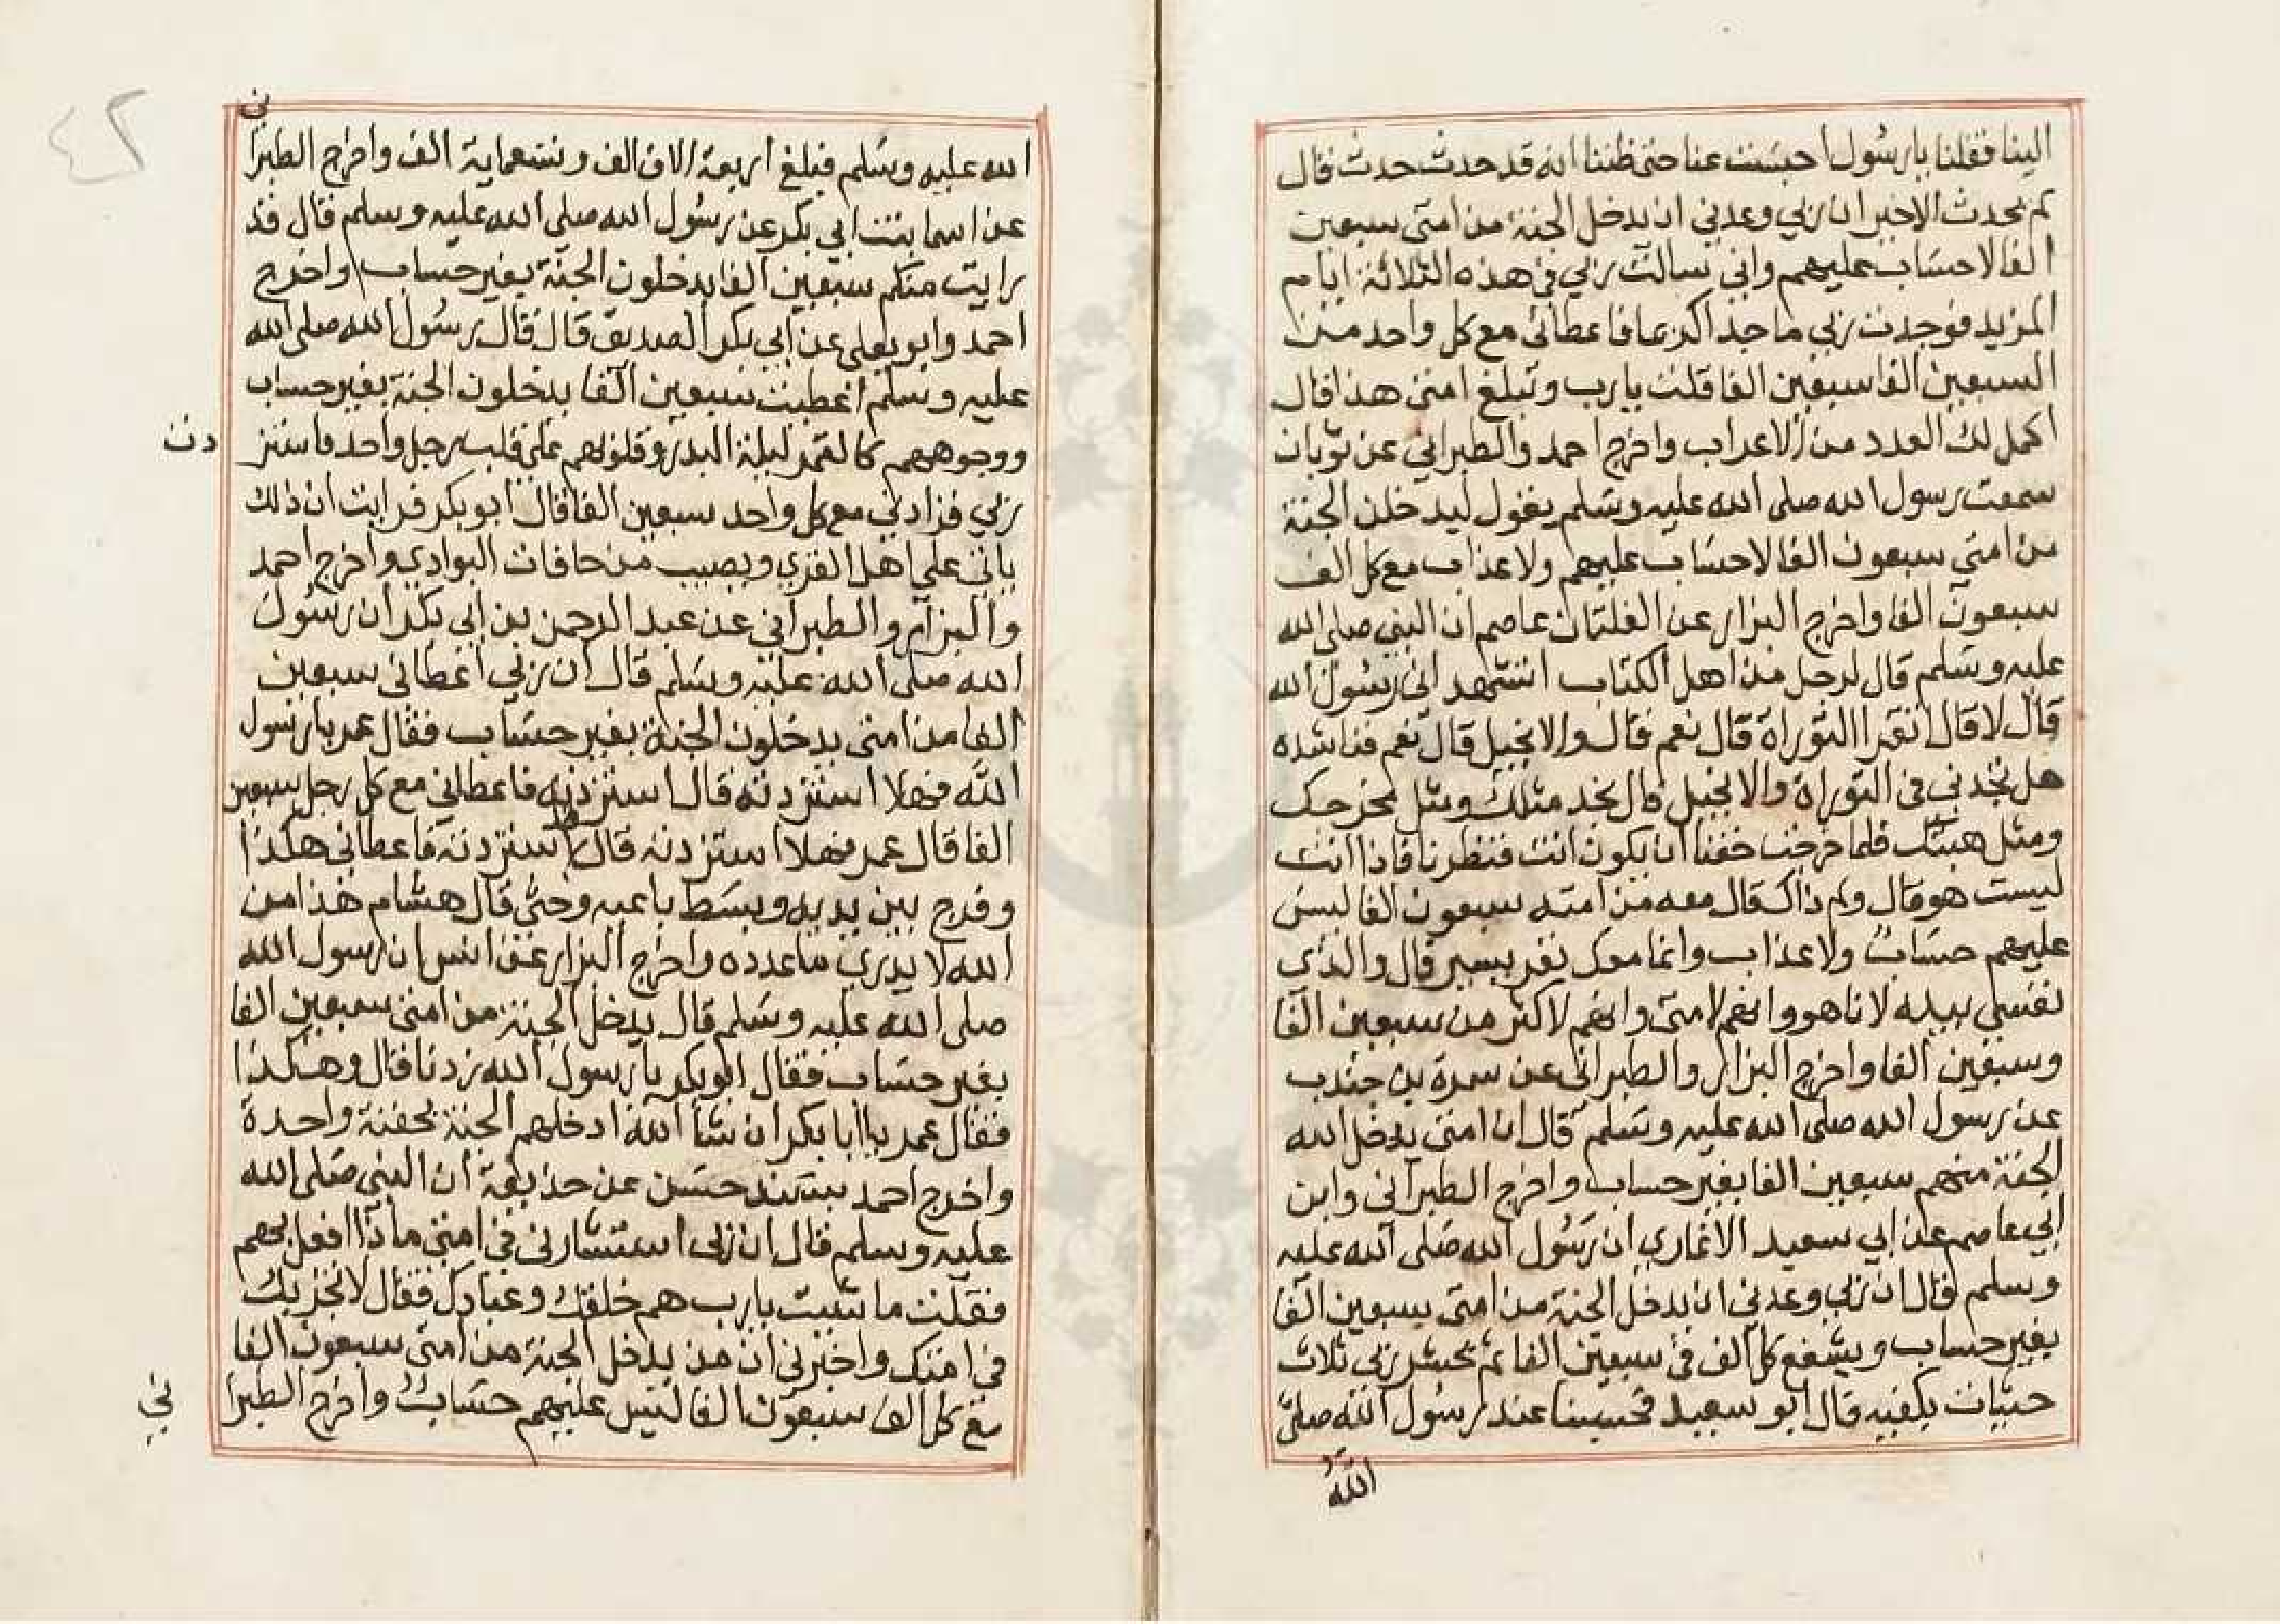 الينا فقلنا يا رسول احبسنت عنا حتى ظننا انه قد حدث حدث قال
لم يحدث الاخير ان ربي وعدني ان يدخل الجنة من امتى سبعين
الفا لا حساب عليهم وانى سالت ربي في هذه الثلاثة ايام
المزيد فوجدت ربي ماجدا كريما فاعطانى مع كل واحد من
السبعين الفا سبعين الفا قلت يا رب وتبلغ امتى هذا قال
اكمل لك العدد من الاعراب واخرج احمد والطبراني عن ثوبان
سمعت رسول الله صلى الله عليه وسلم يقول ليدخلن الجنة
من امتى سبعون الفا لا حساب عليهم ولا عذاب مع كل الف
سبعون الفا واخرج البزار عن الفلتان عاصم ان النبي صلى الله
عليه وسلم قال لرجل من اهل الكتاب اتشهد انى رسول الله
قال لا قال اتقرا التوراة قال نعم قال والانجيل قال نعم فناشده
هل تجدني في التوراة والانجيل قال نجد مثلك ومثل مخرجك
ومثل هيئتك فلما خرجت خفنا ان يكون انت فنظرنا فاذا انت
ليست هو قال ولم ذاك قال معه من امته سبعون الفا ليس
عليهم حساب ولا عذاب وانما معك نفر يسير قال والذي
نفسي بيده لانا هو وانهم لامتى وانهم لاكثر من سبعين الفا
وسبعين الفا واخرج البزار والطبرانى عن سمرة بن جندب
عن رسول الله صلى الله عليه وسلم قال ان امتى يدخل الله
الجنة منهم سبعين الفا بغير حساب واخرج الطبرانى وابن
ابي عاصم عن ابي سعيد الانماري ان رسول الله صلى الله عليه
وسلم قال ان ربي وعدني ان يدخل الجنة من امتى سبعين الفا
بغير حساب ويشفع كل الف في سبعين الفا ثم يحثى ربى ثلاث
حثيات بكفيه قال ابو سعيد فحسبنا عند رسول الله صلى
الله
٤٢
ني
الله عليه وسلم فبلغ اربعة الاف الف وتسعماية الف واخرج الطبرا
عن اسما بنت ابي بكر عن رسول الله صلى الله عليه وسلم قال قد
رايت منكم سبعين الفا يدخلون الجنة بغير حساب واخرج
احمد وابو يعلى عن ابي بكر الصديق قال قال رسول الله صلى الله
عليه وسلم اعطيت سبعين الفا يدخلون الجنة بغير حساب
ووجوههم كالقمر ليلة البدر وقلوبهم على قلب رجل واحد فاستز
دت
ربي فزادني مع كل واحد سبعين الفا قال ابو بكر فرايت ان ذلك
ياتي على اهل القري ويصيب من حافات البوادي واخرج احمد
والبزار والطبراني عن عبد الرحمن بن ابي بكر ان رسول
الله صلى الله عليه وسلم قال ان ربي اعطانى سبعين
الفا من امتى يدخلون الجنة بغير حساب فقال عمر يا رسول
الله فهلا استزدته قال استزدته فاعطاني مع كل رجل سبعين
الفا قال عمر فهلا استزدته قال استزدته فاعطانى هكذا
وفرج بين يديه وبسط باعيه وحثى قال هشام هذا من
الله لا يدري ما عدده واخرج البزار عن انس ان رسول الله
صلى الله عليه وسلم قال يدخل الجنة من امتى سبعين الفا
بغير حساب فقال ابو بكر يا رسول الله زدنا قال وهكذا
فقال عمر يا ابا بكر ان شا الله ادخلهم الجنة بحفنة واحدة
واخرج احمد بسند حسن عن حذيفة ان النبي صلى الله
عليه وسلم قال ان ربى استشارنى في امتى ماذا افعل بهم
فقلت ما شيت يا رب هم خلقك وعبادك فقال لا نخزيك
في امتك واخبرني ان من يدخل الجنة من امتى سبعون الفا
مع كل الف سبعون الفا ليس عليهم حساب واخرج الطبرا
ني